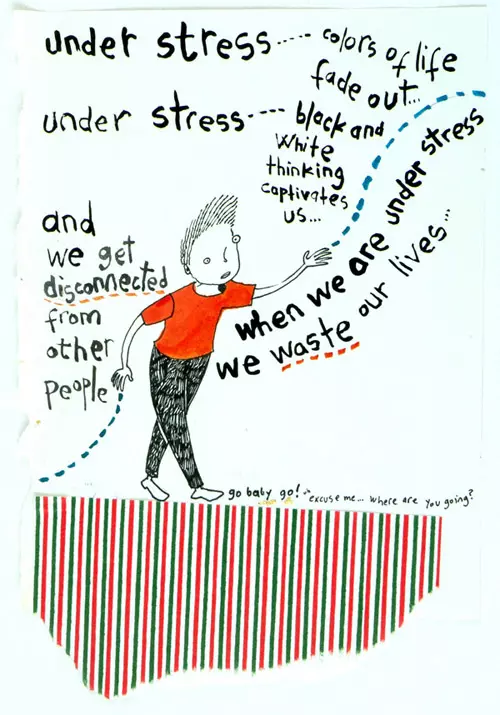 under stress..... colors of life
fade out...
under stress---- black and
white
thinking
captivates
us...
and
we get
disconnected
from
other
people
when we are under stress
we waste our lives...
go baby go!
excuse me... where are you going?